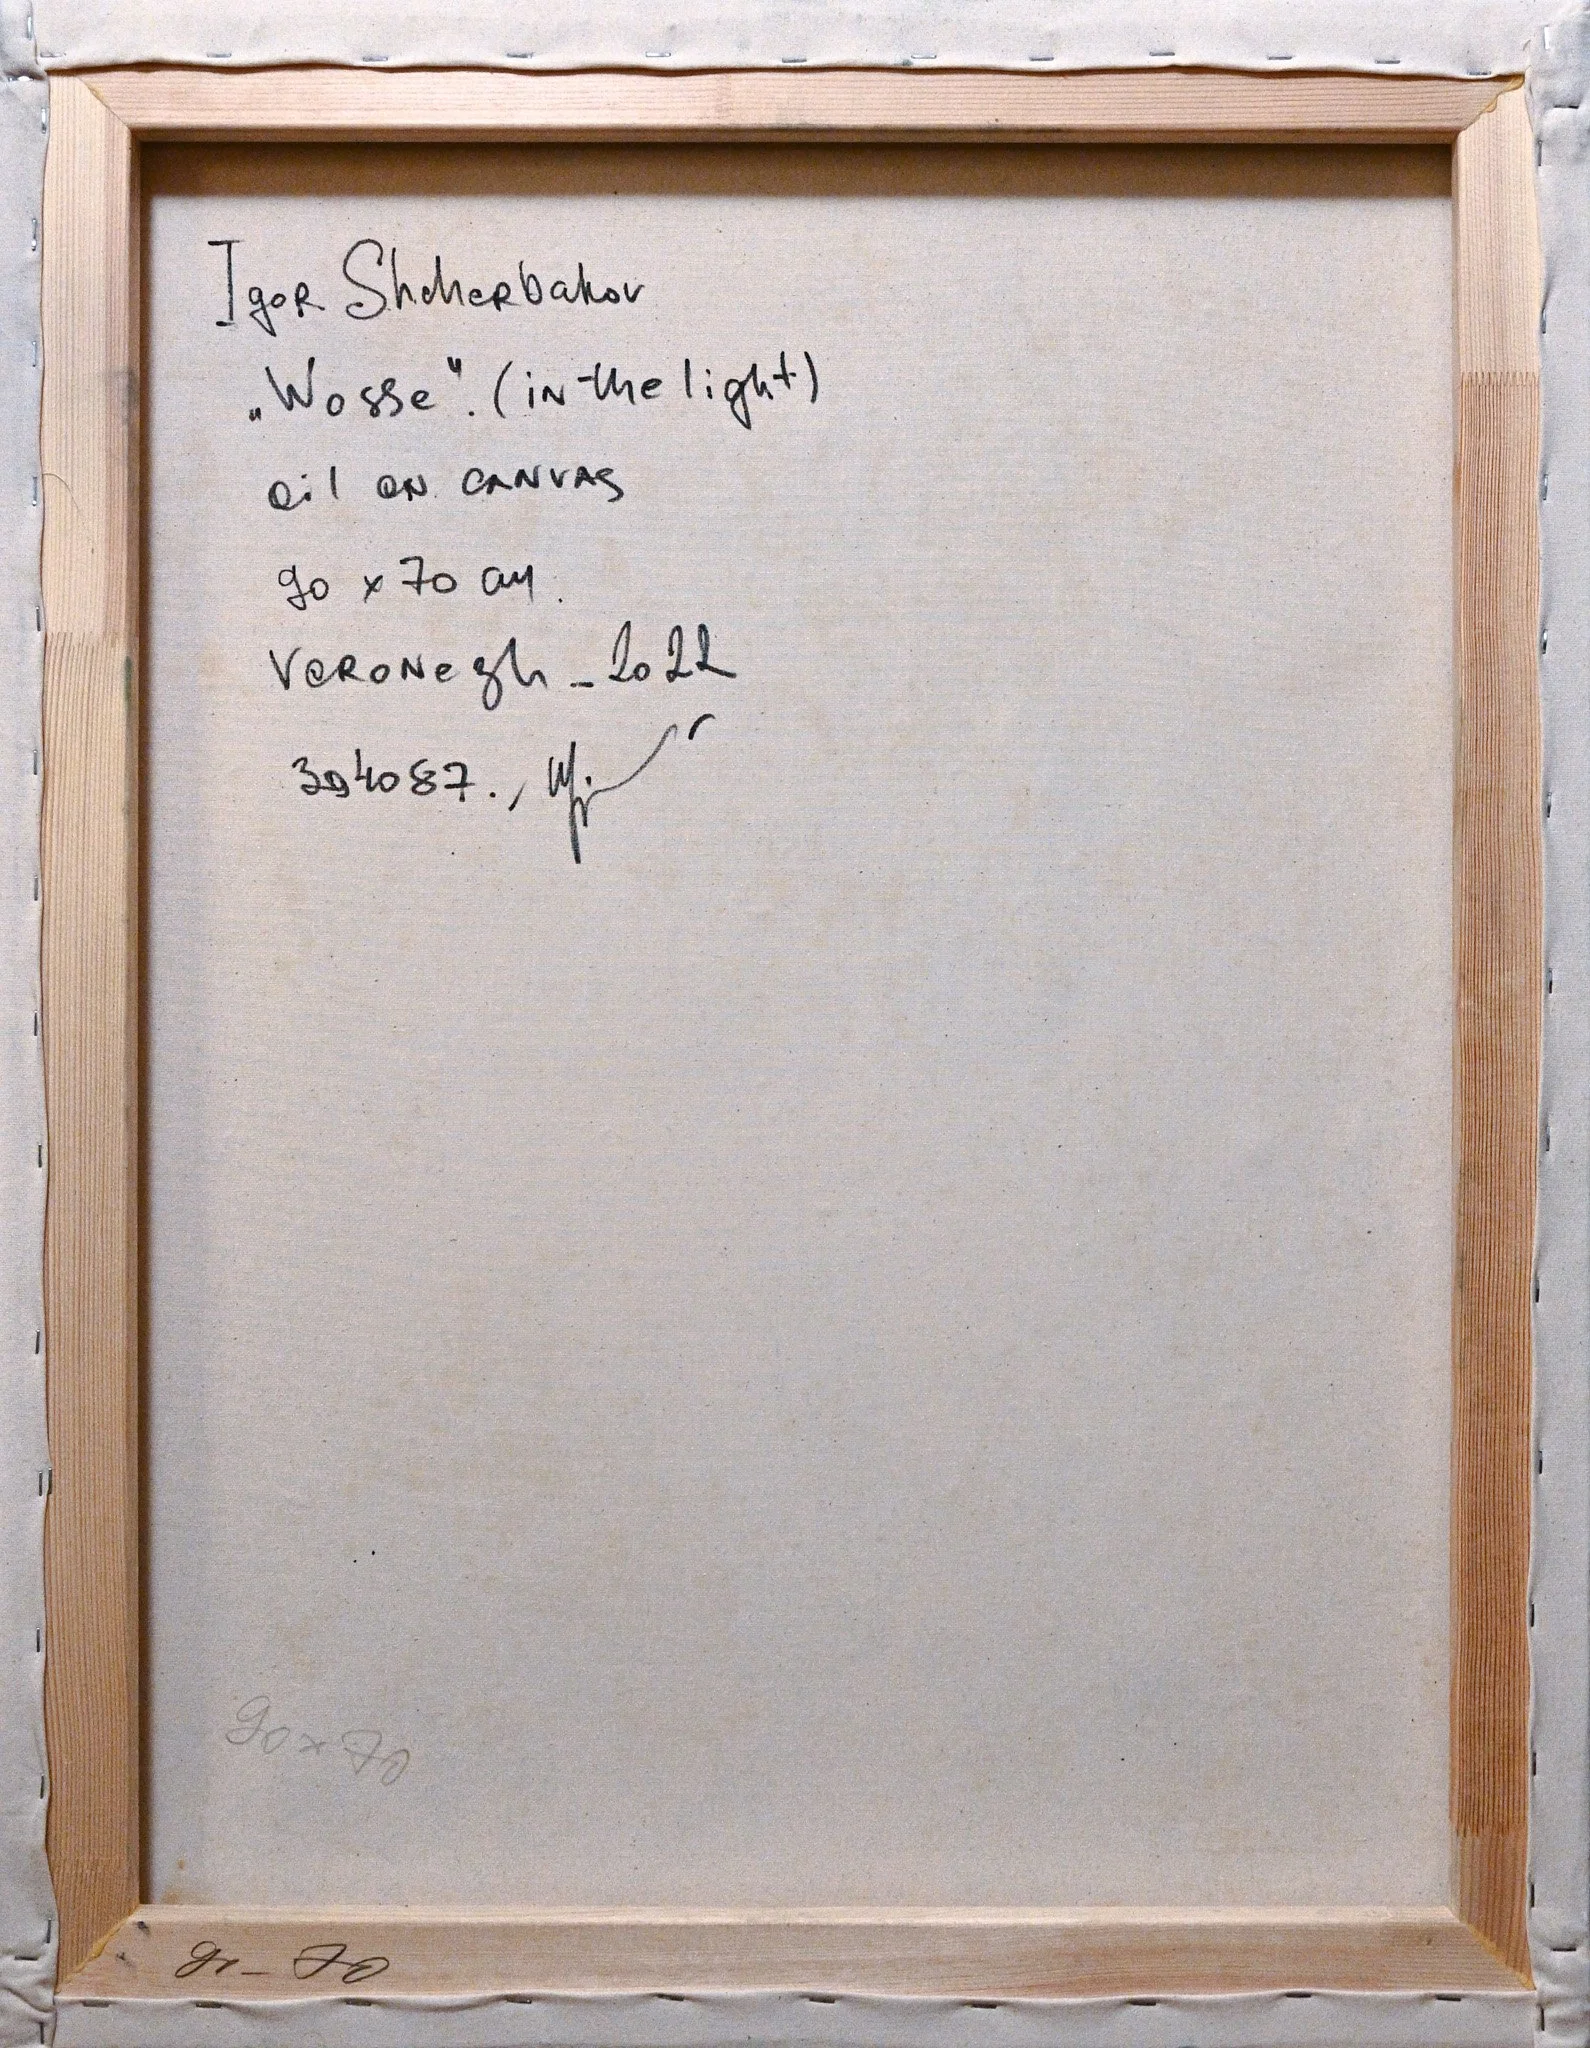 Igor Shcherbakov
„Wosse". (in the light)
oil on canvas
90 x 70 cm.
Veronezh _ 2022
394087.,
90 x 70
90 _ 70